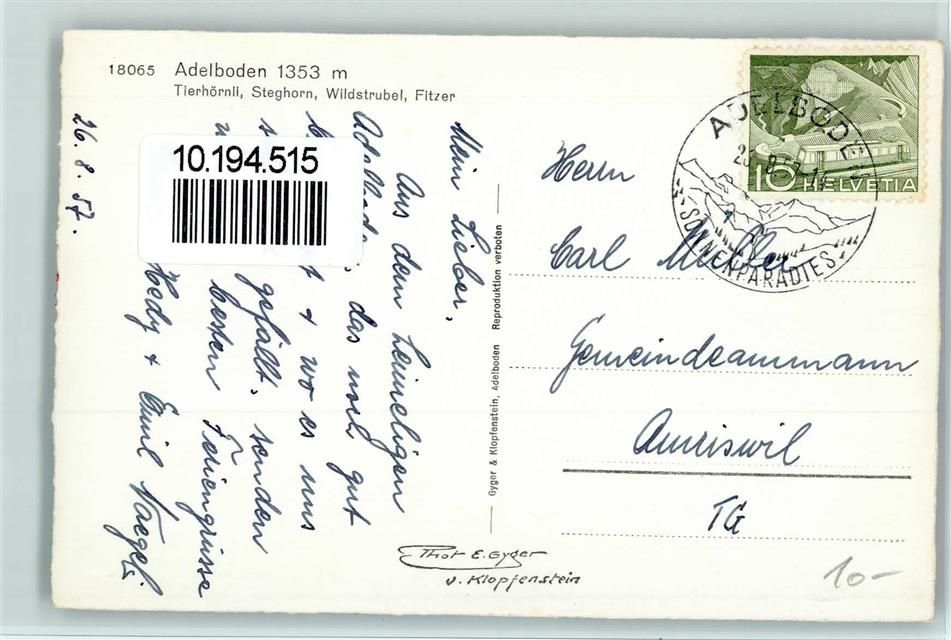 18065 Adelboden 1353 m
Tierhörnli, Steghorn, Wildstrubel, Fitzer
26. 8. 57.
10.194.515
Mein Lieber,
Aus dem heimeligen
das uns gut
+ wo es uns
gefällt. senden
besten Feriengrüsse
Hedy + Emil Naegeli
Gyger & Klopfenstein, Adelboden Reproduktion verboten
Phot E. Gyger
u. Klopfenstein
ADELBODEN
SONNENPARADIES
10 HELVETIA
Herrn
Carl Müller
Gemeindeammann
Amriswil
TG
10-